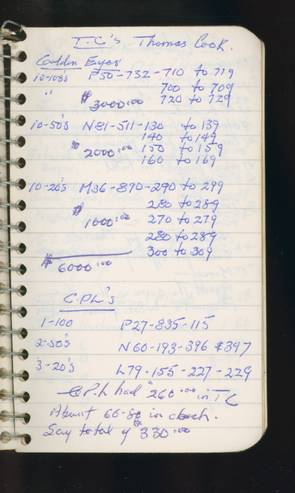 T.C's Thomas Cook.
Golden Eyes
10-100s P50-732-710 to 719
" 700 to 709
$3000.00 720 to 729
10-50's N81-511-130 to 139
140 to 149
$2000.00 150 to 159
160 to 169
10-20's M36-890-290 to 299
280 to 289
$1000.00 270 to 279
280 to 289
300 to 309
$6000.00
C.P.L's
1-100 P27-835-115
2-50's N60-193-396 & 397
3-20's L79-155-227-229
C.P.L had $260.00 in T C
About 60-80 in cash.
Say total of $330.00